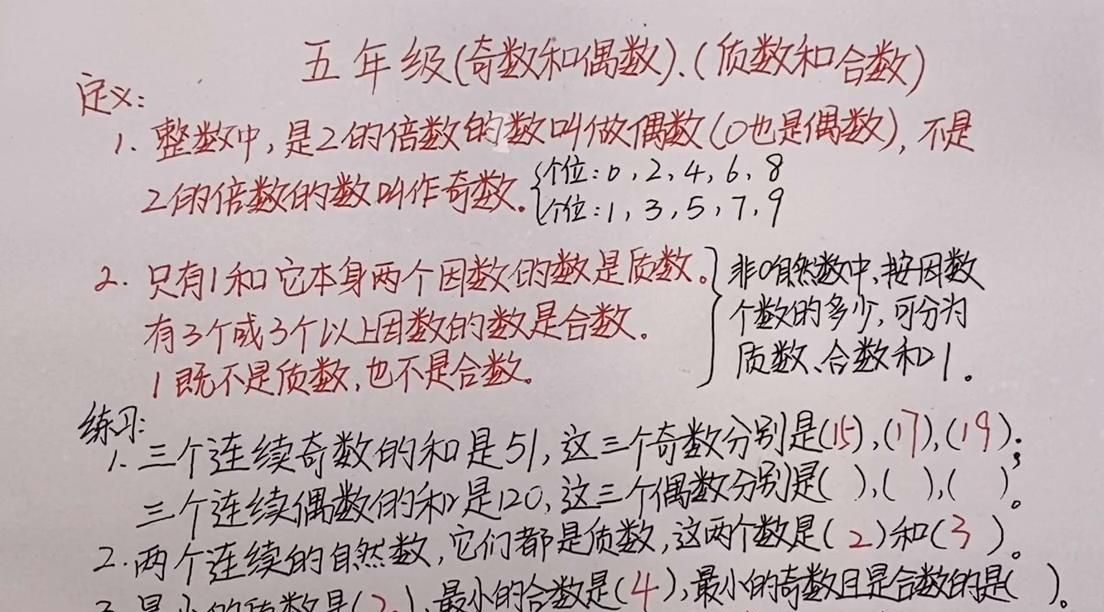 五年级(奇数和偶数)、(质数和合数)
定义:
1. 整数中,是2的倍数的数叫做偶数(0也是偶数),不是
2的倍数的数叫作奇数。{个位:0,2,4,6,8
个位:1,3,5,7,9
2. 只有1和它本身两个因数的数是质数。
有3个或3个以上因数的数是合数。
1既不是质数,也不是合数。
非0自然数中、按因数
个数的多少,可分为
质数、合数和1。
练习:
1. 三个连续奇数的和是51,这三个奇数分别是(15),(17),(19);
三个连续偶数的和是120,这三个偶数分别是( ),( ),( )。
2. 两个连续的自然数,它们都是质数,这两个数是(2)和(3)。
3. 最小的质数是(2),最小的合数是(4),最小的奇数且是合数的是( )。